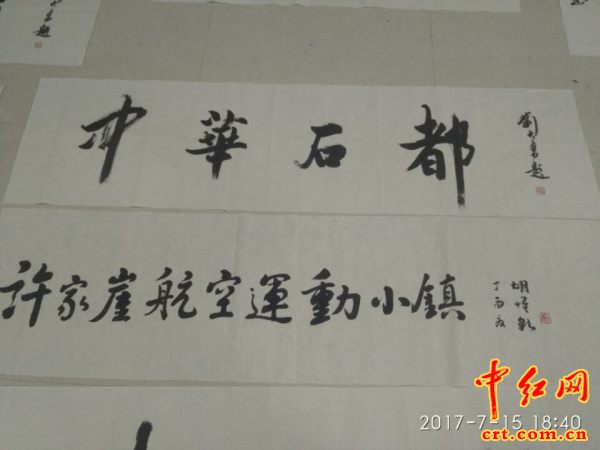 中華石都
許家崖航空運動小鎮
丁酉夏
中红网
2017-7-15 18:40
crt.com.cn